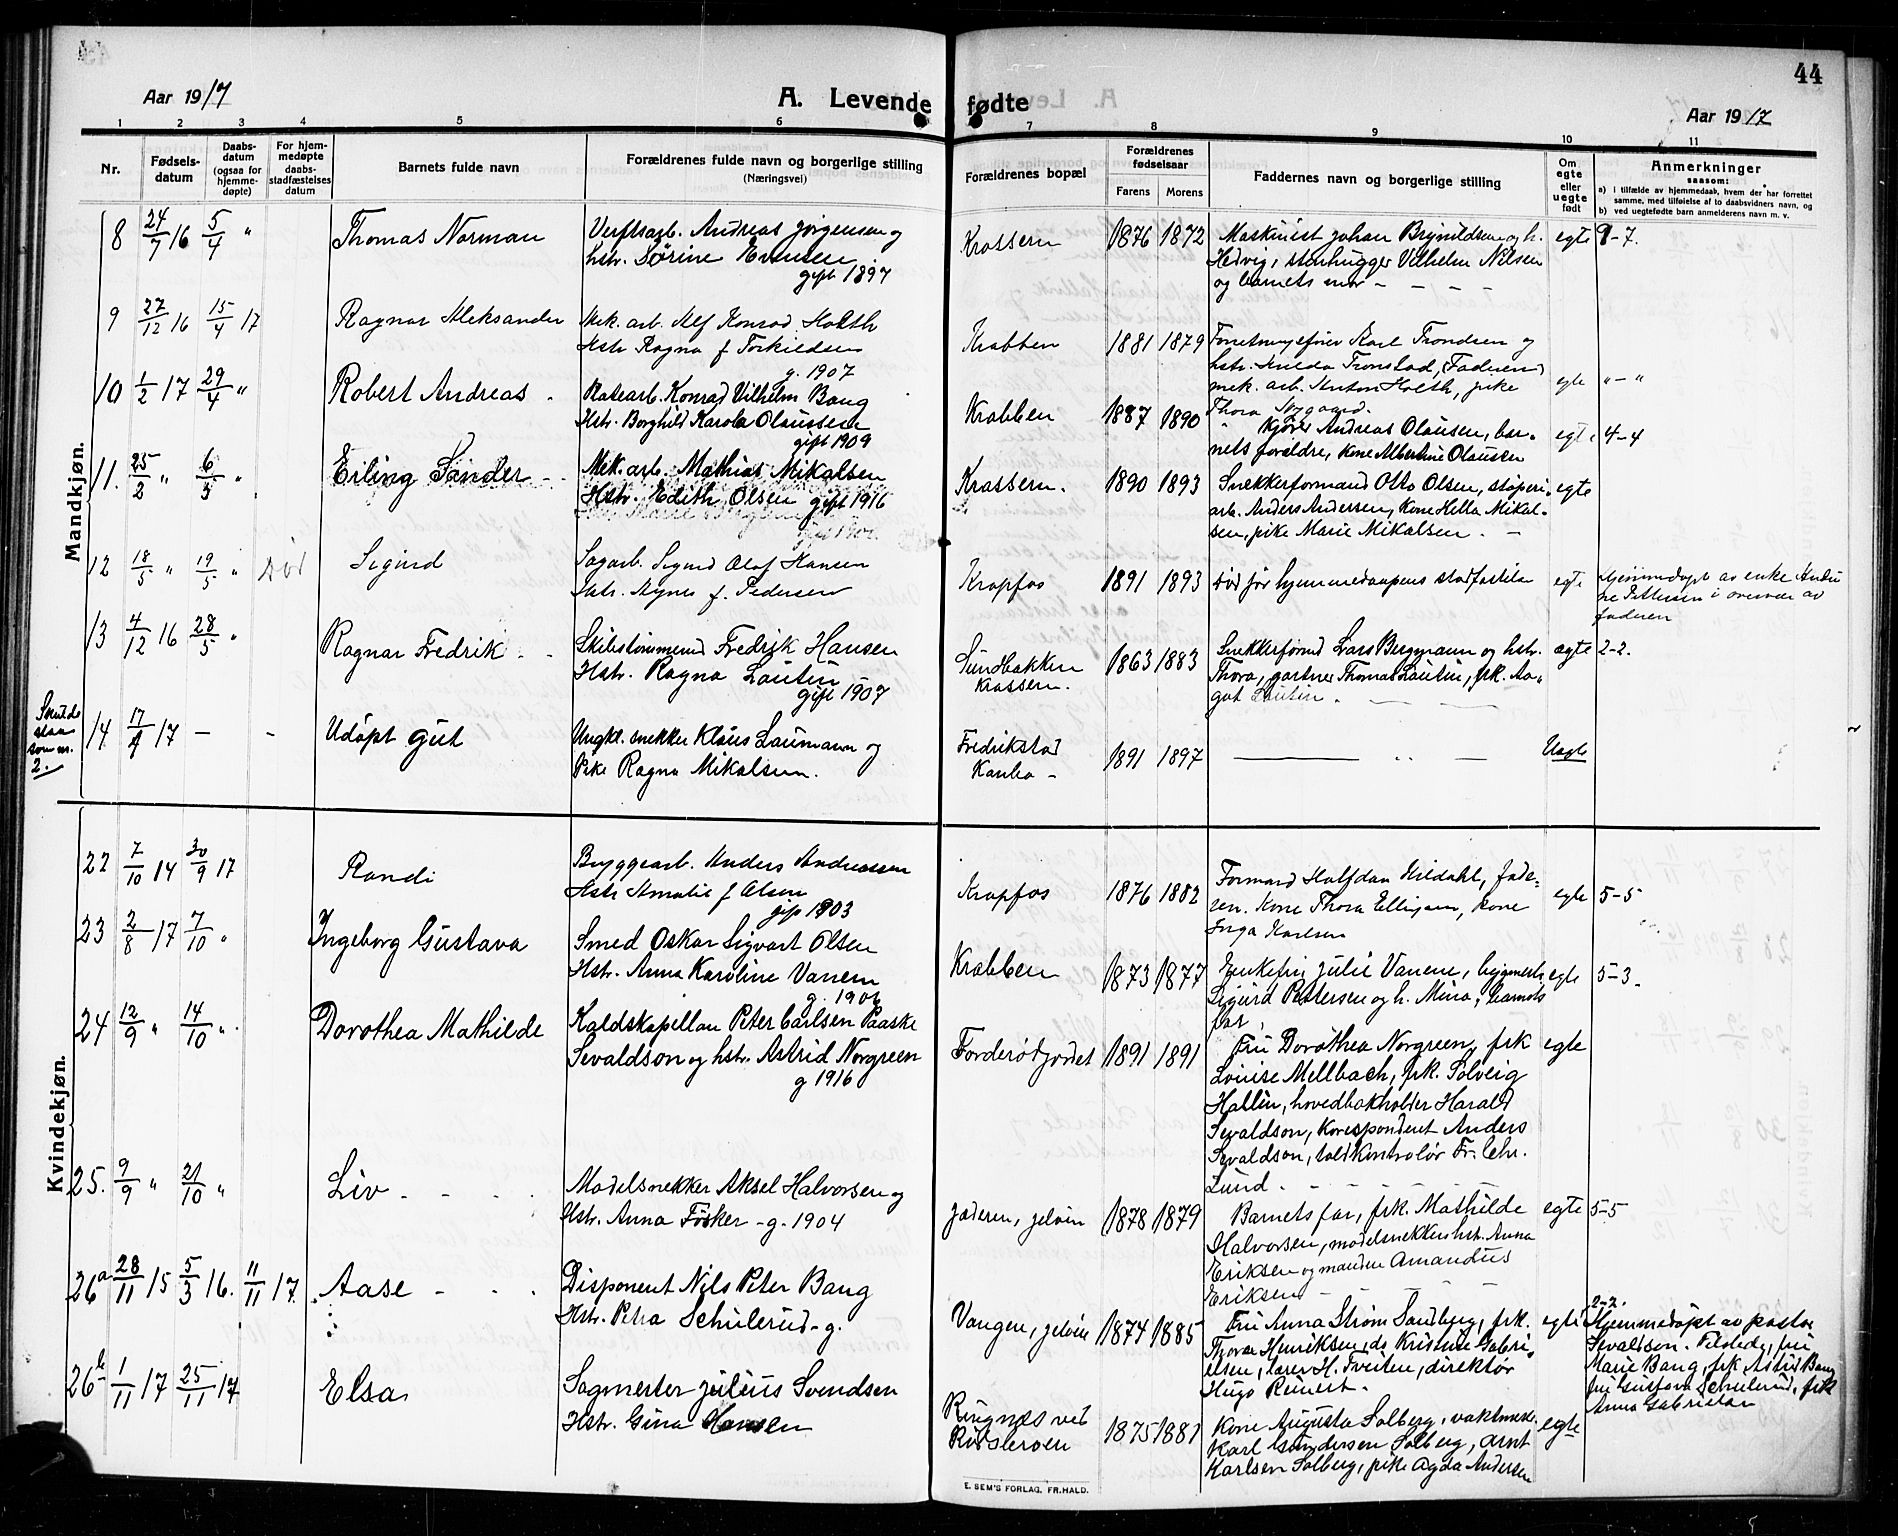 44
Aar 1917
A. Levende fødte
Aar 1917
1 2 3 4 5 6 7 8 9 10 11
Nr.
Fødsels-
datum
Daabs-
datum
(ogsaa for
hjemme-
døpte)
For hjem-
medøpte
daabs-
stadfæstelses
datum
Barnets fulde navn
Forældrenes fulde navn og borgerlige stilling
(Næringsvei)
Forældrenes bopæl
Forældrenes
fødselsaar
Farens Morens
Faddernes navn og borgerlige stilling
Om
egte
eller
uegte
født
Anmerkninger
saasom:
a) i tilfælde av hjemmedaab, hvem der har forrettet
samme, med tilføielse av to daabsvidners navn, og
b) ved uegtefødte barn anmelderens navn m. v.
Mandkjøn.
8 24/7 16 5/4 "
Thomas Norman
Verftsarb. Andreas Jørgensen og
hstr. Sørine Evensen
gift 1897
Krossern
1876 1872
Maskinist Johan Brynildsen og h.
Hedvig, stenhugger Vilhelm Nilsen
og barnets mor - - - -
egte
9-7.
9 27/12 16 15/4 17
Ragnar Aleksander
Mek. arb. Alf Konrad Holth
Hstr Ragna f Torkildsen
g. 1907
Krabben
1881 1879
Forretningsfører Karl Trondsen og
hstr. Hulda Tronstad, (Faderen)
mek. arb. Anton Holth, pike
Thora Nygaard.
egte
"-"
10 1/2 17 29/4 "
Robert Andreas -
Konrad Vilhelm Bang
Hstr. Borghild Karola Olaussen
gift 1909
Krabben
1887 1890
Kjører Andreas Olausen, bar-
nets foreldre, kone Albertine Olausen
egte
4-4
11. 25/2 " 6/5 "
Erling Sander - -
Mek. arb. Mathias Mikalsen
Hstr. Edith Olsen gift 1916
Krossern.
1890 1893
Snekkerformand Otto Olsen, støperi-
arb. Anders Andersen, kone Hella Mikal-
sen, pike Marie Mikalsen. -
egte
12 18/5 " 19/5 " Død
Sigurd
Sagarb. Sigurd Olaf Hansen
Hstr. Agnes f. Pedersen
Krapfos
1891 1893
Død før hjemmedaapens stadfæstelse
egte
Hjemmedøpt av enke Andri-
ne Pettersen i overvær av
faderen
13 4/12 16 28/5 "
Ragnar Fredrik - -
Skibstømmermd Fredrik Hansen
Hstr. Ragna Lautin
gift 1907
Sundbakken
Krossern.
1863 1883
Snekkerformd Lars Bergmann og hstr.
Thora, gartner Thomas Lautin, frk. Aa-
got Lautin. - - -
ægte
2-2.
Skulde
staa
som nr.
2.
14. 17/4 17 - -
Udøpt gut
Ungkl. snekker Klaus Laumann og
Pike Ragna Mikalsen.
Fredrikstad
Kanbo -
1891 1897
— " —
Uegte
Kvindekjøn.
22 7/10 14 30/9 17
Randi
Bryggearb. Anders Andreassen
Hstr Amalie f Olsen
gift 1903
Krapfos
1876 1882
Formand Halfdan Kildahl, fade-
ren. Kone Thora Ellingsen, kone
Inga Karlsen
egte
5-5
23 2/8 17 7/10 "
Ingeborg Gustava
Smed Oskar Sigvart Olsen
Hstr. Anna Karoline Vanem
g. 1906
Krabben
1873 1877
Enkefru Julie Vanem, bygmest.
Sigurd Pettersen og h. Mina, barnets
far,
egte
5-3.
24 12/9 " 14/10 ".
Dorothea Mathilde
Kaldskapellan Peter Carlsen Paaske
Sevaldson og hstr. Astrid Norgreen
g 1916
Forderødjordet
1891 1891
Fru Dorothea Norgreen, frk
Louise Mellbach, frk. Solveig
Hallin, hovedbokholder Harald
Sevaldson, korespondent Anders
Sevaldson, toldkontrolør Fr. Chr.
Lund. - - - - -
egte
25. 9/9 " 21/10 "
Liv - - -
Modelsnekker Aksel Halvorsen og
Hstr. Anna Fosker - g. 1904
Jæderen, Jeløen
1878 1879
Barnets far, frk. Mathilde
Halvorsen, modelsnekker hstr. Anna
Eriksen og manden Amandus
Eriksen - - - -
egte
5-5
26a 28/11 15 5/3 16. 11/11 17.
Aase - -
Disponent Nils Peter Bang
Hstr. Petra Schulerud - g.
Vangen, Jeløen
1874 1885
Fru Anna Strøm Sandberg, frk.
Thora Henriksen, do Kristine Gabri-
elsen, lærer H. Tveiten, direktør
Hugo Reinert.
egte
2-2.
Hjemmedøpt av pastor
Sevaldson. Tilstede, fru
Marie Bang, frk Astrid Bang
fru Gustava Schulerud, frk
Anna Gabrielsen
26b 1/11 17 25/11 17
Elsa
Sagmester Julius Svendsen
Hstr. Gina Hansen
Ringnæs ved
Rosleroen
1875 1881
Kone Augusta Solberg, vaktmester
Karl Gundersen Solberg, Arnt
Karlsen Solberg, pike Agda Andersen
egte
E. SEM'S FORLAG. FR.HALD.